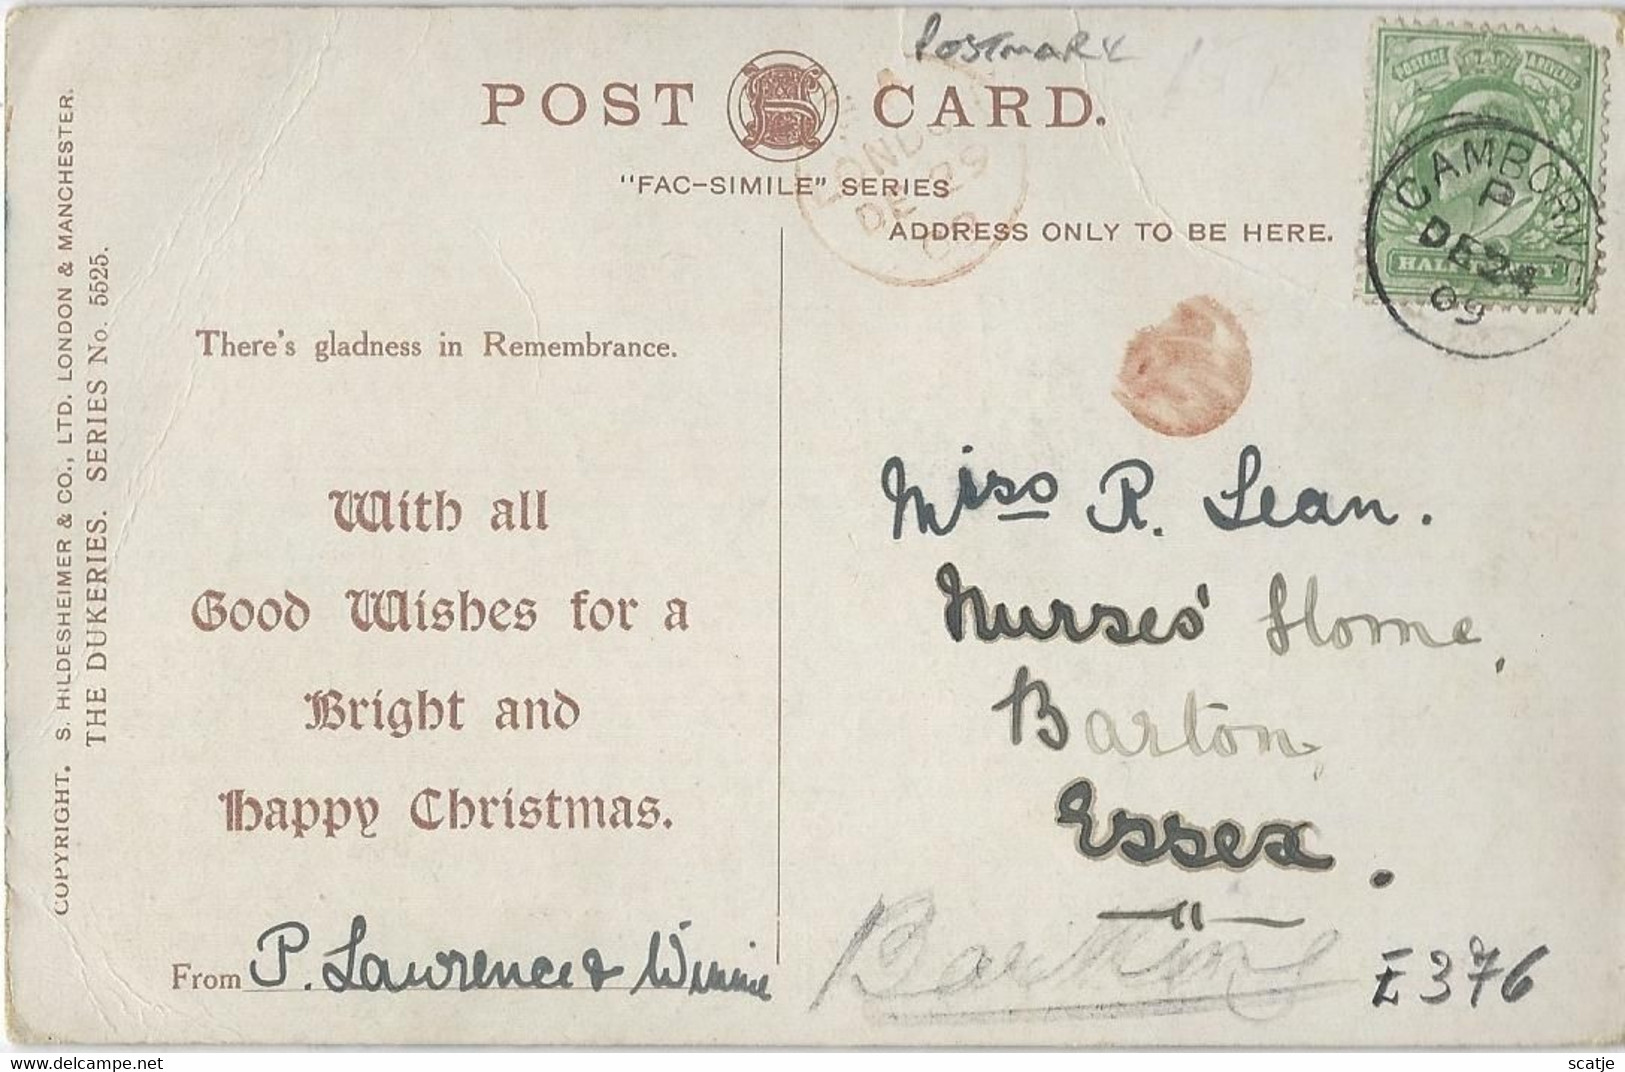 Postmark
POST CARD.
"FAC-SIMILE" SERIES
ADDRESS ONLY TO BE HERE.
LONDON
DE 29
09
POSTAGE REVENUE
HALFPENNY
CAMBORNE
P
DE 24
09
COPYRIGHT. S. HILDESHEIMER & CO., LTD. LONDON & MANCHESTER.
THE DUKERIES. SERIES No. 5525.
There's gladness in Remembrance.
With all
Good Wishes for a
Bright and
Happy Christmas.
From P. Lawrence & Winnie
Miss R. Lean.
Nurses' Home,
Barton,
Essex.
E376
scatje